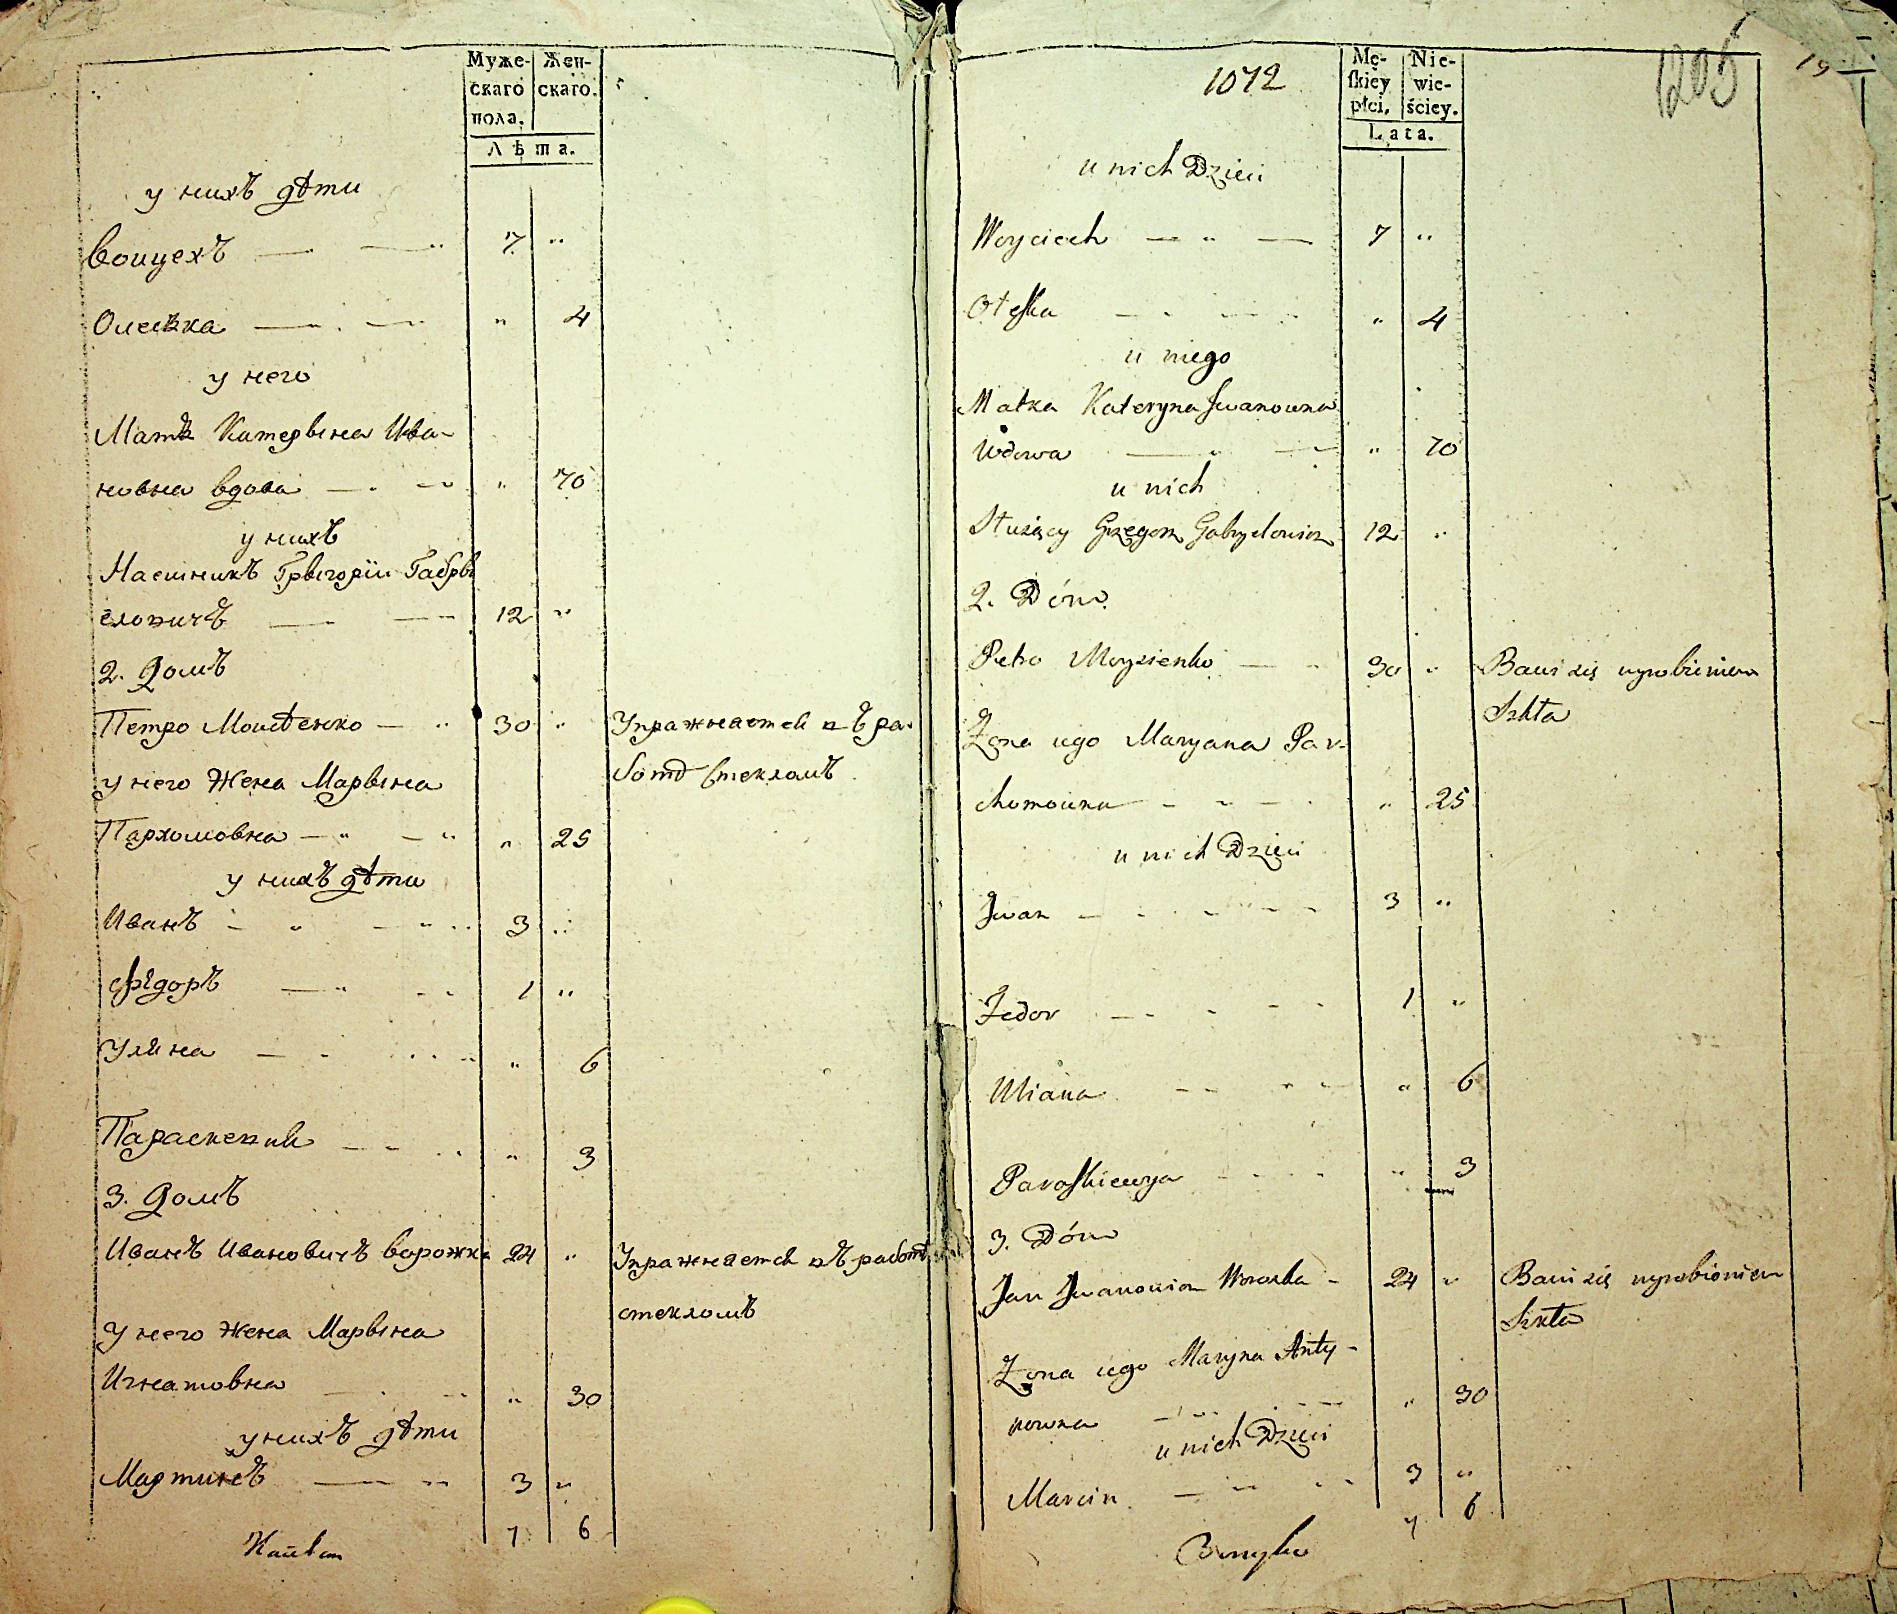 Муже- Жен-
скаго скаго.
пола.
Лѣта.
у нихъ дѣти
Воицехъ 7 "
Олешка " 4
у него
Матка Катерына Ива-
новна вдова " 70
у нихъ
Наемникъ Грыгорiи Габры
еловичъ 12 "
2. Домъ
Петро Моисѣенко 30 " Упражняется въ ра-
ботѣ стекломъ
у него Жена Марьяна
Пархомовна " 25
у нихъ дѣти
Иванъ 3 "
Фѣдоръ 1 "
Уляна " 6
Параскевия " 3
3. Домъ
Иванъ Ивановичъ Ворожка 24 " Упражняется въ работѣ
стекломъ
У него Жена Марына
Игнатовна " 30
у нихъ дѣти
Мартинъ 3 "
7 6
1072
1205
19
Mę- Nie-
skiey wie-
płci. ściey.
Lata.
u nich Dzieci
Woyciech 7 "
Oleska " 4
u niego
Matka Kateryna Jwanowna
Wdowa " 70
u nich
Służący Grzegorz Gabryelowicz 12 "
2. Dóm
Petro Moysienko 30 " Bawi się wyrobieniem
Szkła
Żona iego Maryana Par-
chomowna " 25
u nich Dzieci
Jwan 3 "
Fedor 1 "
Uliana " 6
Paraskiewya " 3
3. Dóm
Jan Jwanowicz Worożka 24 " Bawi się wyrobieniem
Szkła
Żona iego Maryna
nowna " 30
u nich Dzieci
Marcin 3 "
7 6